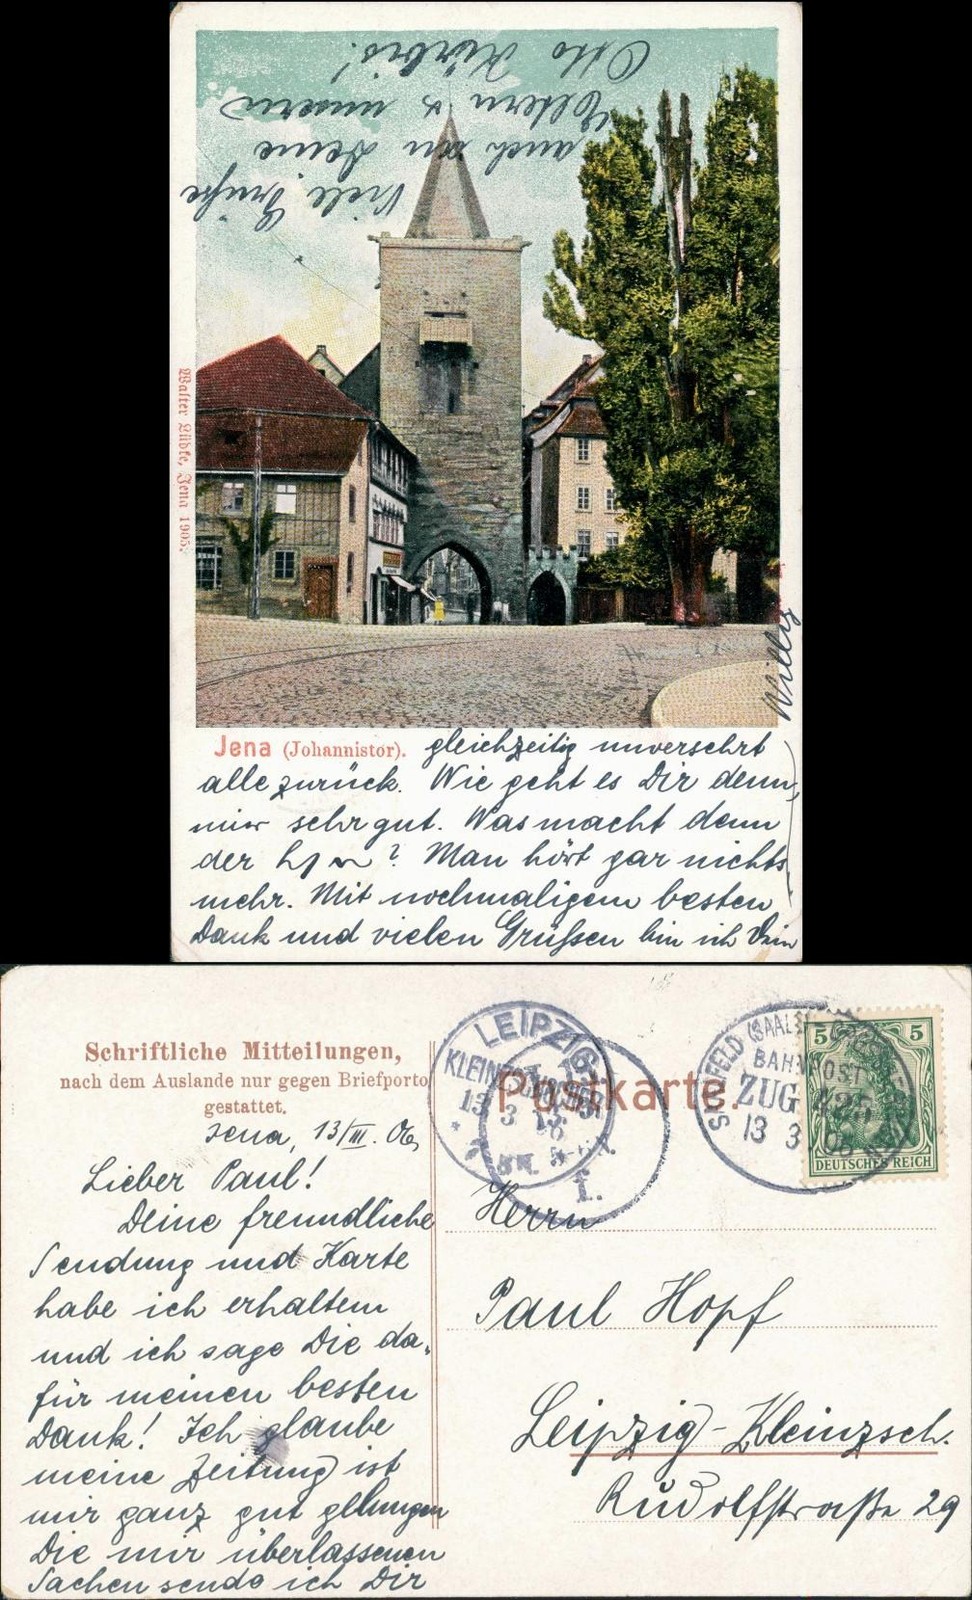 Viele Grüße
auch von Deine
Eltern u. unsern
Otto Kürbis!
Walter Lübke, Jena 1905.
Willy
Jena (Johannistor). gleichzeitig unversehrt
alle zurück. Wie geht es Dir denn,
mir sehr gut. Was macht denn
der ? Man hört gar nichts
mehr. Mit nochmaligem besten
Dank und vielen Grüßen bin ich Dein
Schriftliche Mitteilungen,
nach dem Auslande nur gegen Briefporto
gestattet.
Jena, 13/III. 06,
Lieber Paul!
Deine freundliche
Sendung und Karte
habe ich erhalten
und ich sage Die da-
für meinen besten
Dank! Ich glaube
meine Zeitung ist
mir ganz gut gelungen
Die mir überlassenen
Sachen sende ich Dir
Postkarte.
LEIPZIG-
KLEINZSCHOCHER
13 3
06
5-6 N.
1.
SAALFELD (SAALE)
BAHNPOST
ZUG
13 3 06
5 5
DEUTSCHES REICH
Herrn
Paul Hopf
Leipzig-Kleinzsch.
Rudolfstraße 29